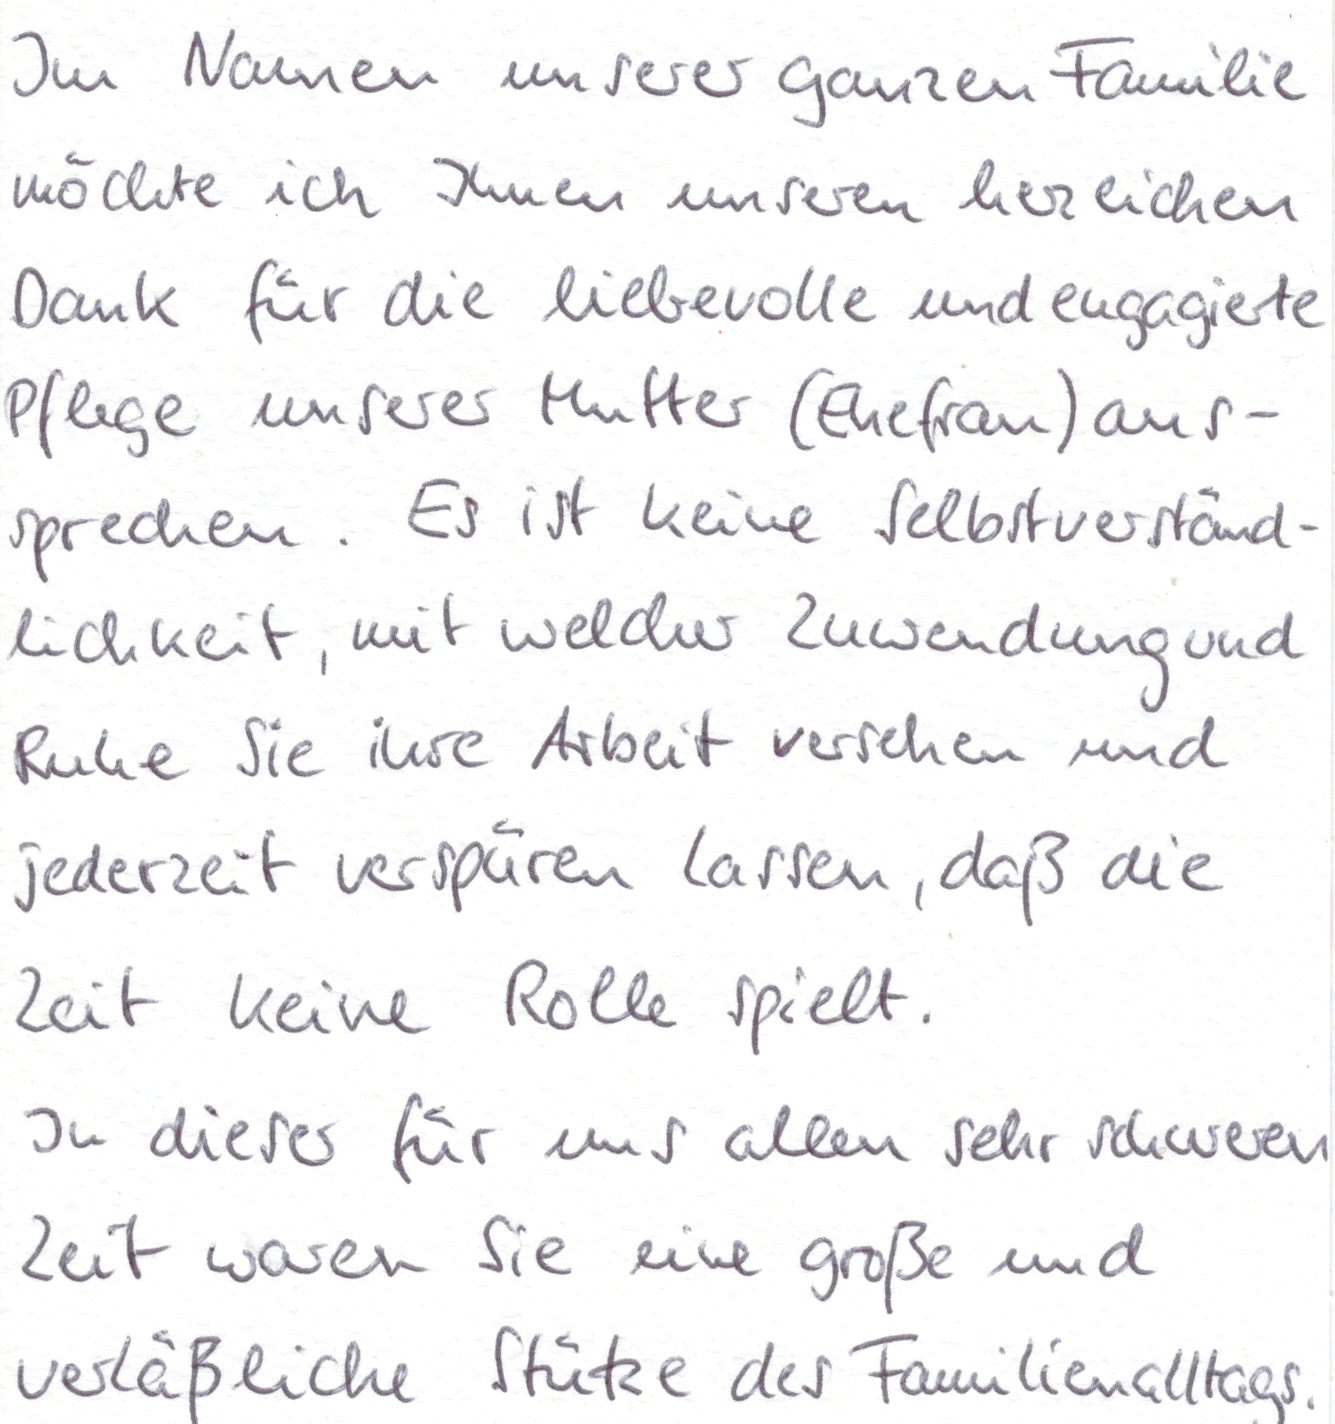 Im Namen unserer ganzen Familie
möchte ich Ihnen unseren herzlichen
Dank für die liebevolle und engagierte
Pflege unserer Mutter (Ehefrau) aus-
sprechen. Es ist keine Selbstverständ-
lichkeit, mit welcher Zuwendung und
Ruhe Sie ihre Arbeit versehen und
jederzeit verspüren lassen, daß die
Zeit keine Rolle spielt.
In dieser für uns allen sehr schweren
Zeit waren Sie eine große und
verläßliche Stütze des Familienalltags.